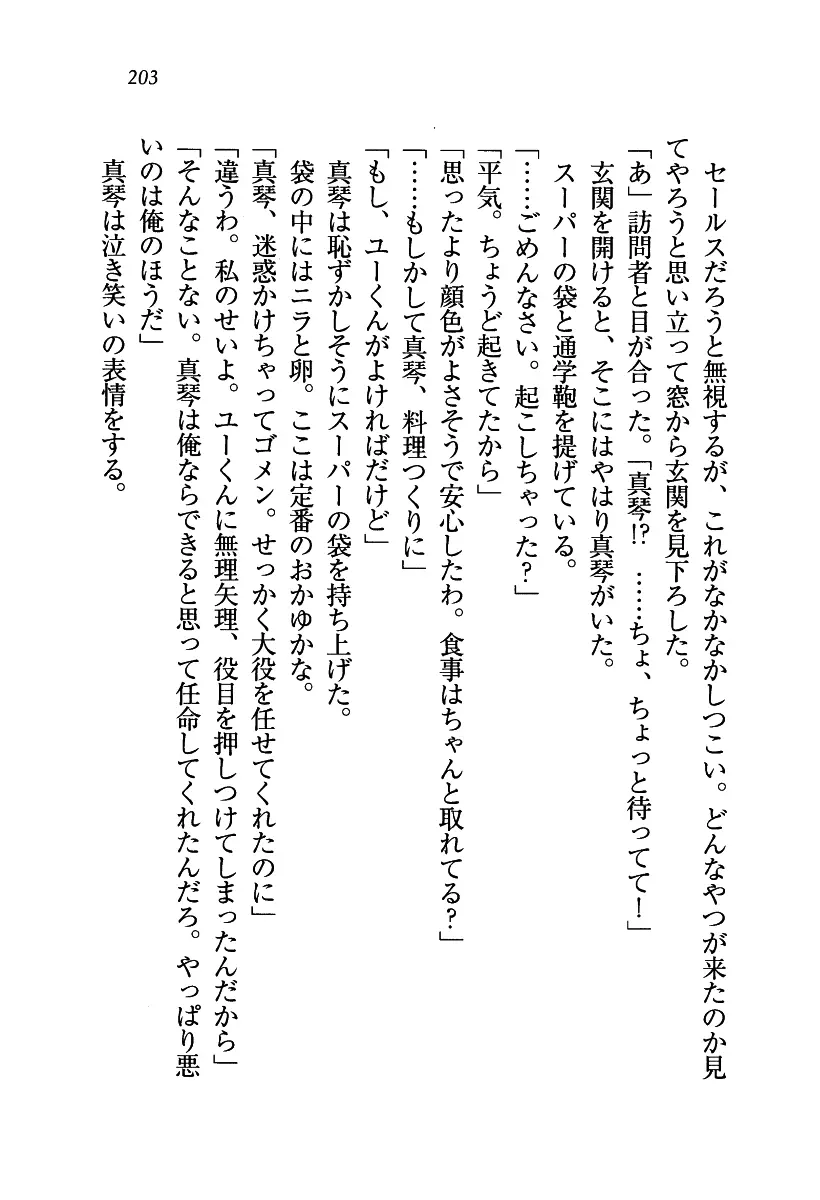 203
　セールスだろうと無視するが、これがなかなかしつこい。どんなやつが来たのか見
てやろうと思い立って窓から玄関を見下ろした。
「あ」訪問者と目が合った。「真琴!?　……ちょ、ちょっと待ってて！」
　玄関を開けると、そこにはやはり真琴がいた。
　スーパーの袋と通学鞄を提げている。
「……ごめんなさい。起こしちゃった？」
「平気。ちょうど起きてたから」
「思ったより顔色がよさそうで安心したわ。食事はちゃんと取れてる？」
「……もしかして真琴、料理つくりに」
「もし、ユーくんがよければだけど」
　真琴は恥ずかしそうにスーパーの袋を持ち上げた。
　袋の中にはニラと卵。ここは定番のおかゆかな。
「真琴、迷惑かけちゃってゴメン。せっかく大役を任せてくれたのに」
「違うわ。私のせいよ。ユーくんに無理矢理、役目を押しつけてしまったんだから」
「そんなことない。真琴は俺ならできると思って任命してくれたんだろ。やっぱり悪
いのは俺のほうだ」
　真琴は泣き笑いの表情をする。